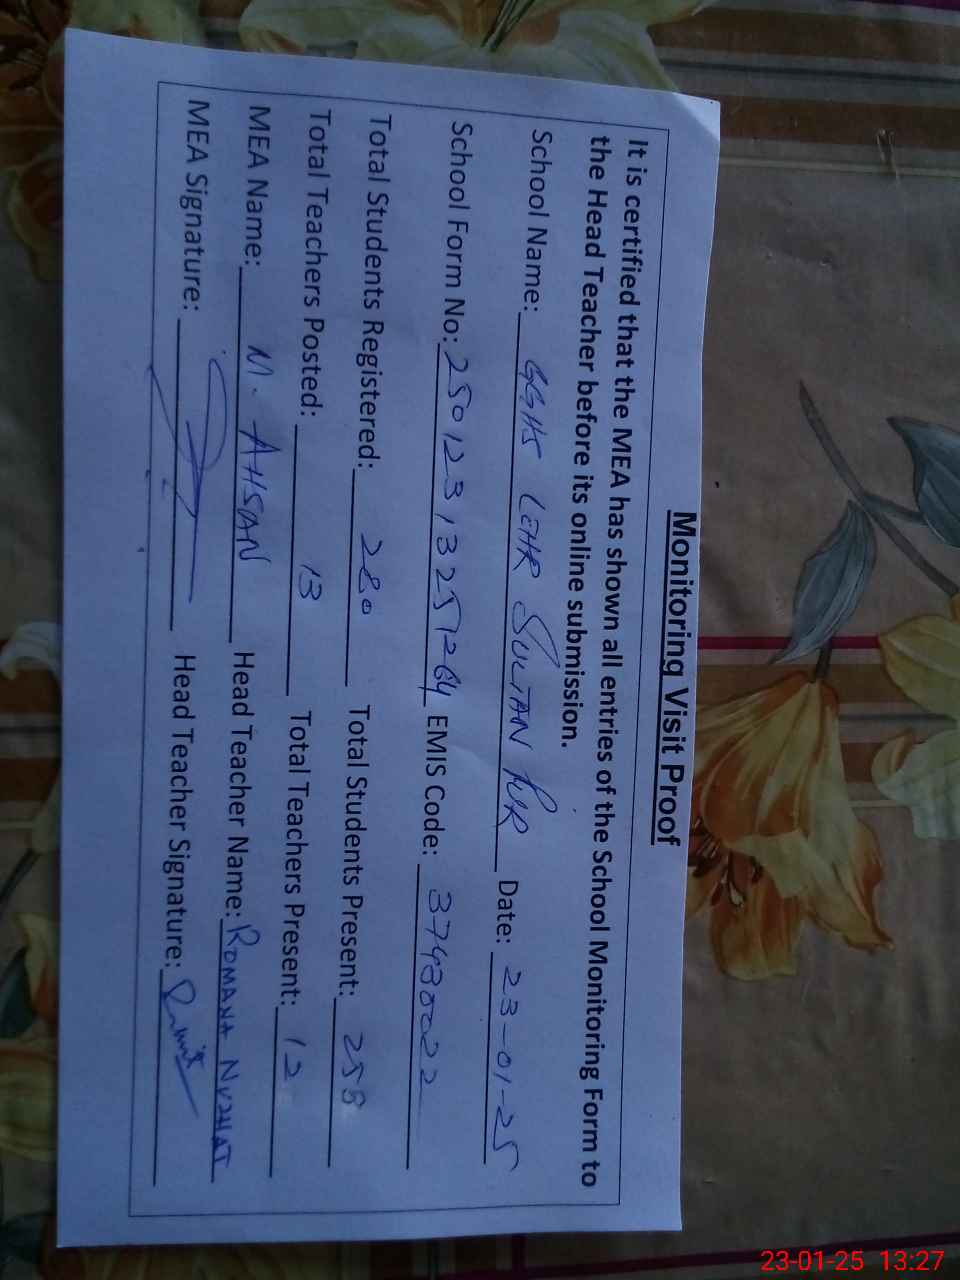 Monitoring Visit Proof
It is certified that the MEA has shown all entries of the School Monitoring Form to
the Head Teacher before its online submission.
School Name: GGHS LEHR SULTAN PUR Date: 23-01-25
School Form No: EMIS Code: 37480022
Total Students Registered: 280 Total Students Present: 258
Total Teachers Posted: 13 Total Teachers Present: 12
MEA Name: M. AHSAN Head Teacher Name: ROMANA NUZHAT
MEA Signature: Head Teacher Signature:
23-01-25 13:27